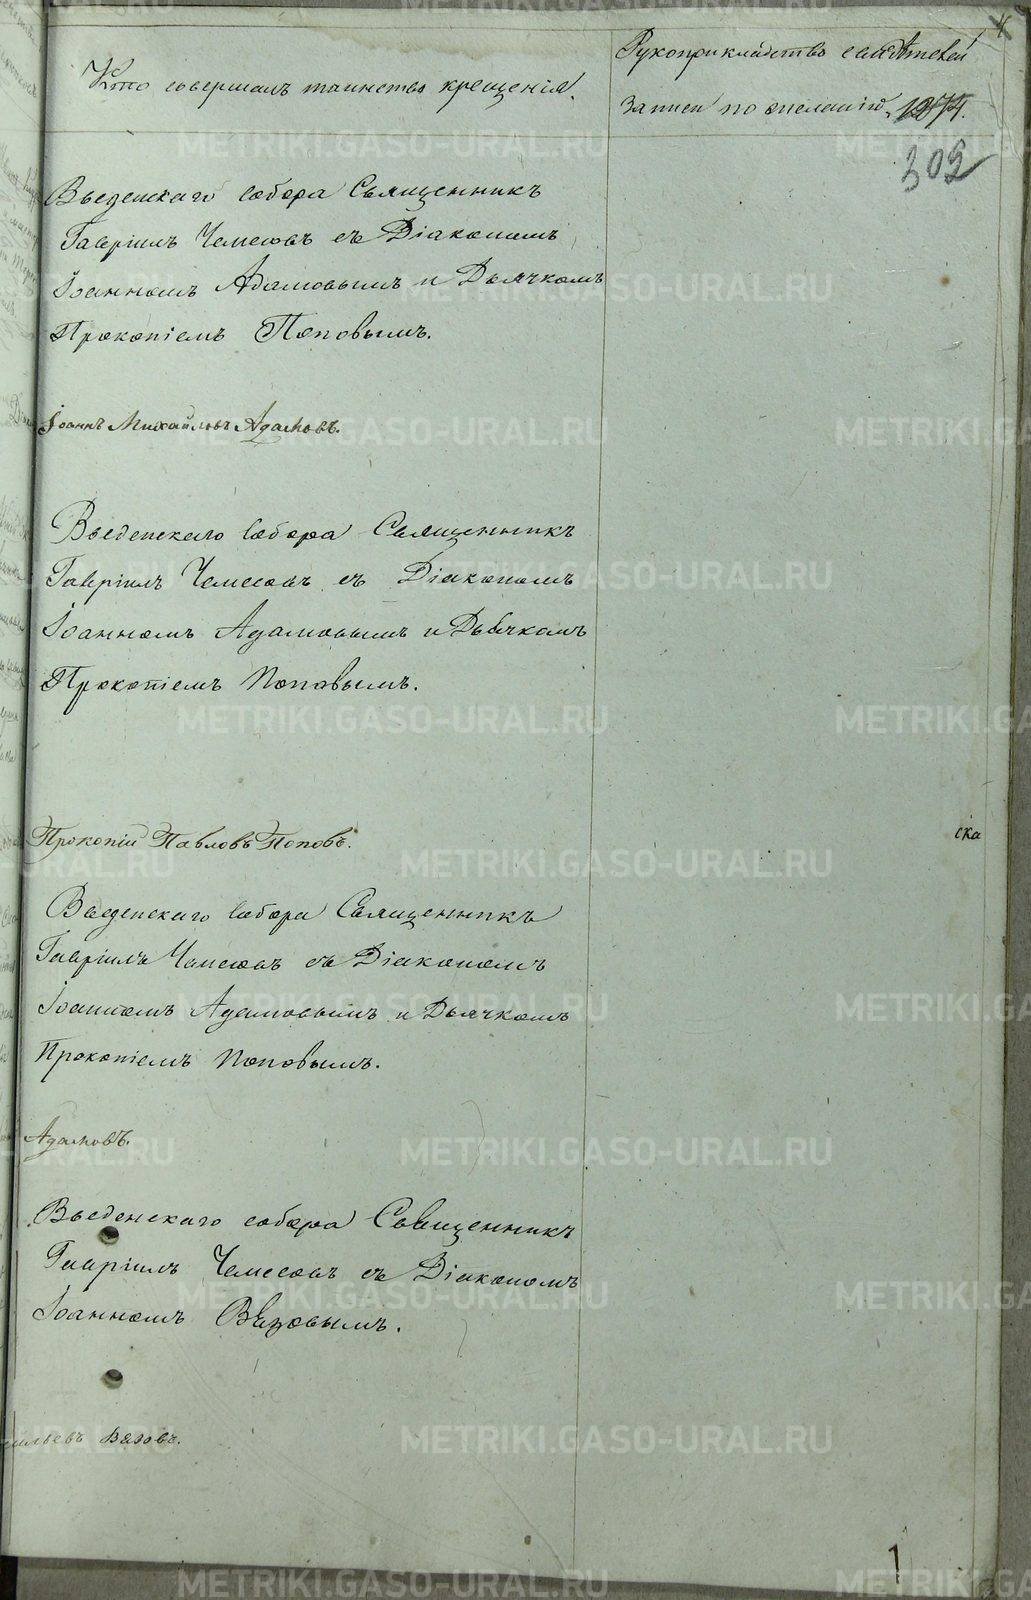 4
Кто совершалъ таинство крещенія.
Рукоприкладство свидѣтелей
записи по желанію.
302
Введенскаго собора Священникъ
Гавріилъ Чемесовъ съ Діакономъ
Іоанномъ Адамовымъ и Дьячкомъ
Прокопіемъ Поповымъ.
Іоаннъ Михайловъ Адамовъ.
Введенскаго собора Священникъ
Гавріилъ Чемесовъ съ Діакономъ
Іоанномъ Адамовымъ и Дьячкомъ
Прокопіемъ Поповымъ.
Прокопій Павловъ Поповъ.
ска
Введенскаго собора Священникъ
Гавріилъ Чемесовъ съ Діакономъ
Іоанномъ Адамовымъ и Дьячкомъ
Прокопіемъ Поповымъ.
Адамовъ.
Введенскаго собора Священникъ
Гавріилъ Чемесовъ съ Діакономъ
Іоанномъ Вязовымъ.
сильевъ Вязовъ.
1
METRIKI.GASO-URAL.RU